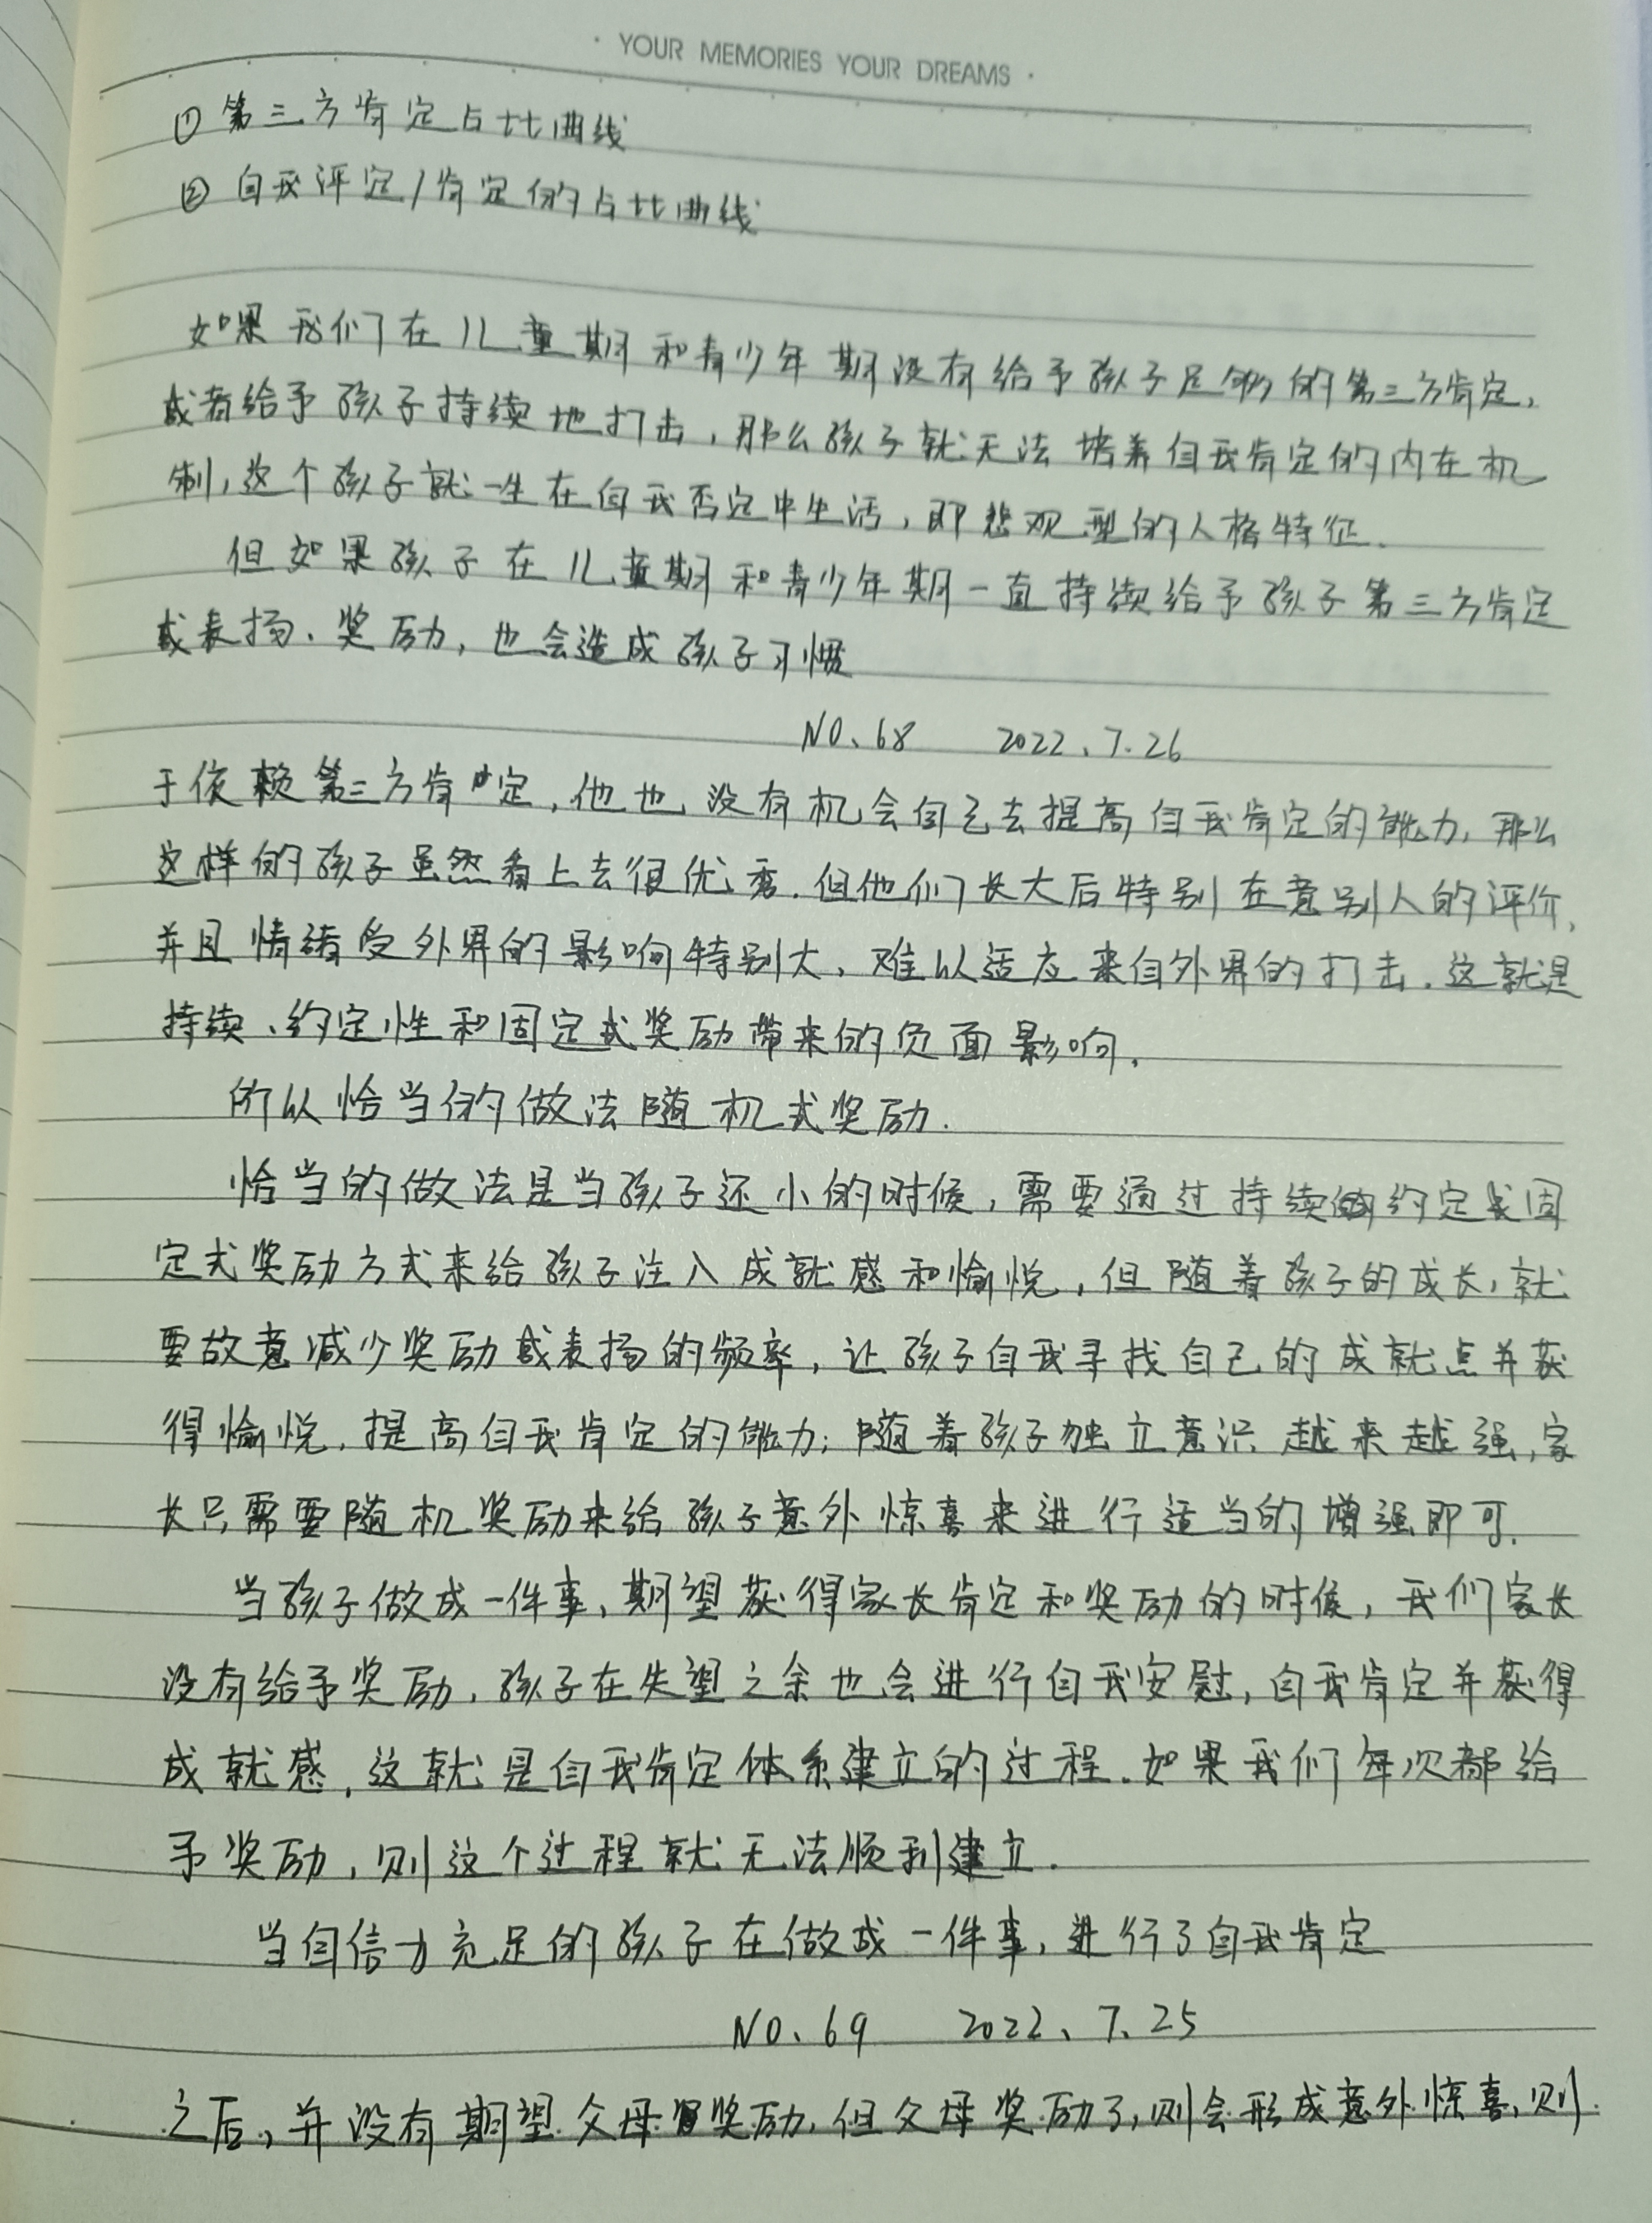 · YOUR MEMORIES YOUR DREAMS ·
① 第三方肯定占比曲线
② 自我评定/肯定的占比曲线
如果我们在儿童期和青少年期没有给予孩子足够的第三方肯定,
或者给予孩子持续地打击,那么孩子就无法培养自我肯定的内在机
制,这个孩子就一生在自我否定中生活,即悲观型的人格特征.
但如果孩子在儿童期和青少年期一直持续给予孩子第三方肯定
或表扬、奖励,也会造成孩子习惯
NO.68 2022.7.26
于依赖第三方肯定,他也没有机会自己去提高自我肯定的能力,那么
这样的孩子虽然看上去很优秀.但他们长大后特别在意别人的评价,
并且情绪受外界的影响特别大、难以适应来自外界的打击.这就是
持续、约定性和固定式奖励带来的负面影响.
所以恰当的做法随机式奖励.
恰当的做法是当孩子还小的时候,需要通过持续的约定或固
定式奖励方式来给孩子注入成就感和愉悦,但随着孩子的成长,就
要故意减少奖励或表扬的频率,让孩子自我寻找自己的成就点并获
得愉悦,提高自我肯定的能力;随着孩子独立意识越来越强,家
长只需要随机奖励来给孩子意外惊喜来进行适当的增强即可.
当孩子做成一件事,期望获得家长肯定和奖励的时候,我们家长
没有给予奖励,孩子在失望之余也会进行自我安慰,自我肯定并获得
成就感,这就是自我肯定体系建立的过程.如果我们每次都给
予奖励,则这个过程就无法顺利建立.
当自信力充足的孩子在做成一件事,进行了自我肯定
NO.69 2022.7.25
之后,并没有期望父母奖励,但父母奖励了,则会形成意外惊喜,则